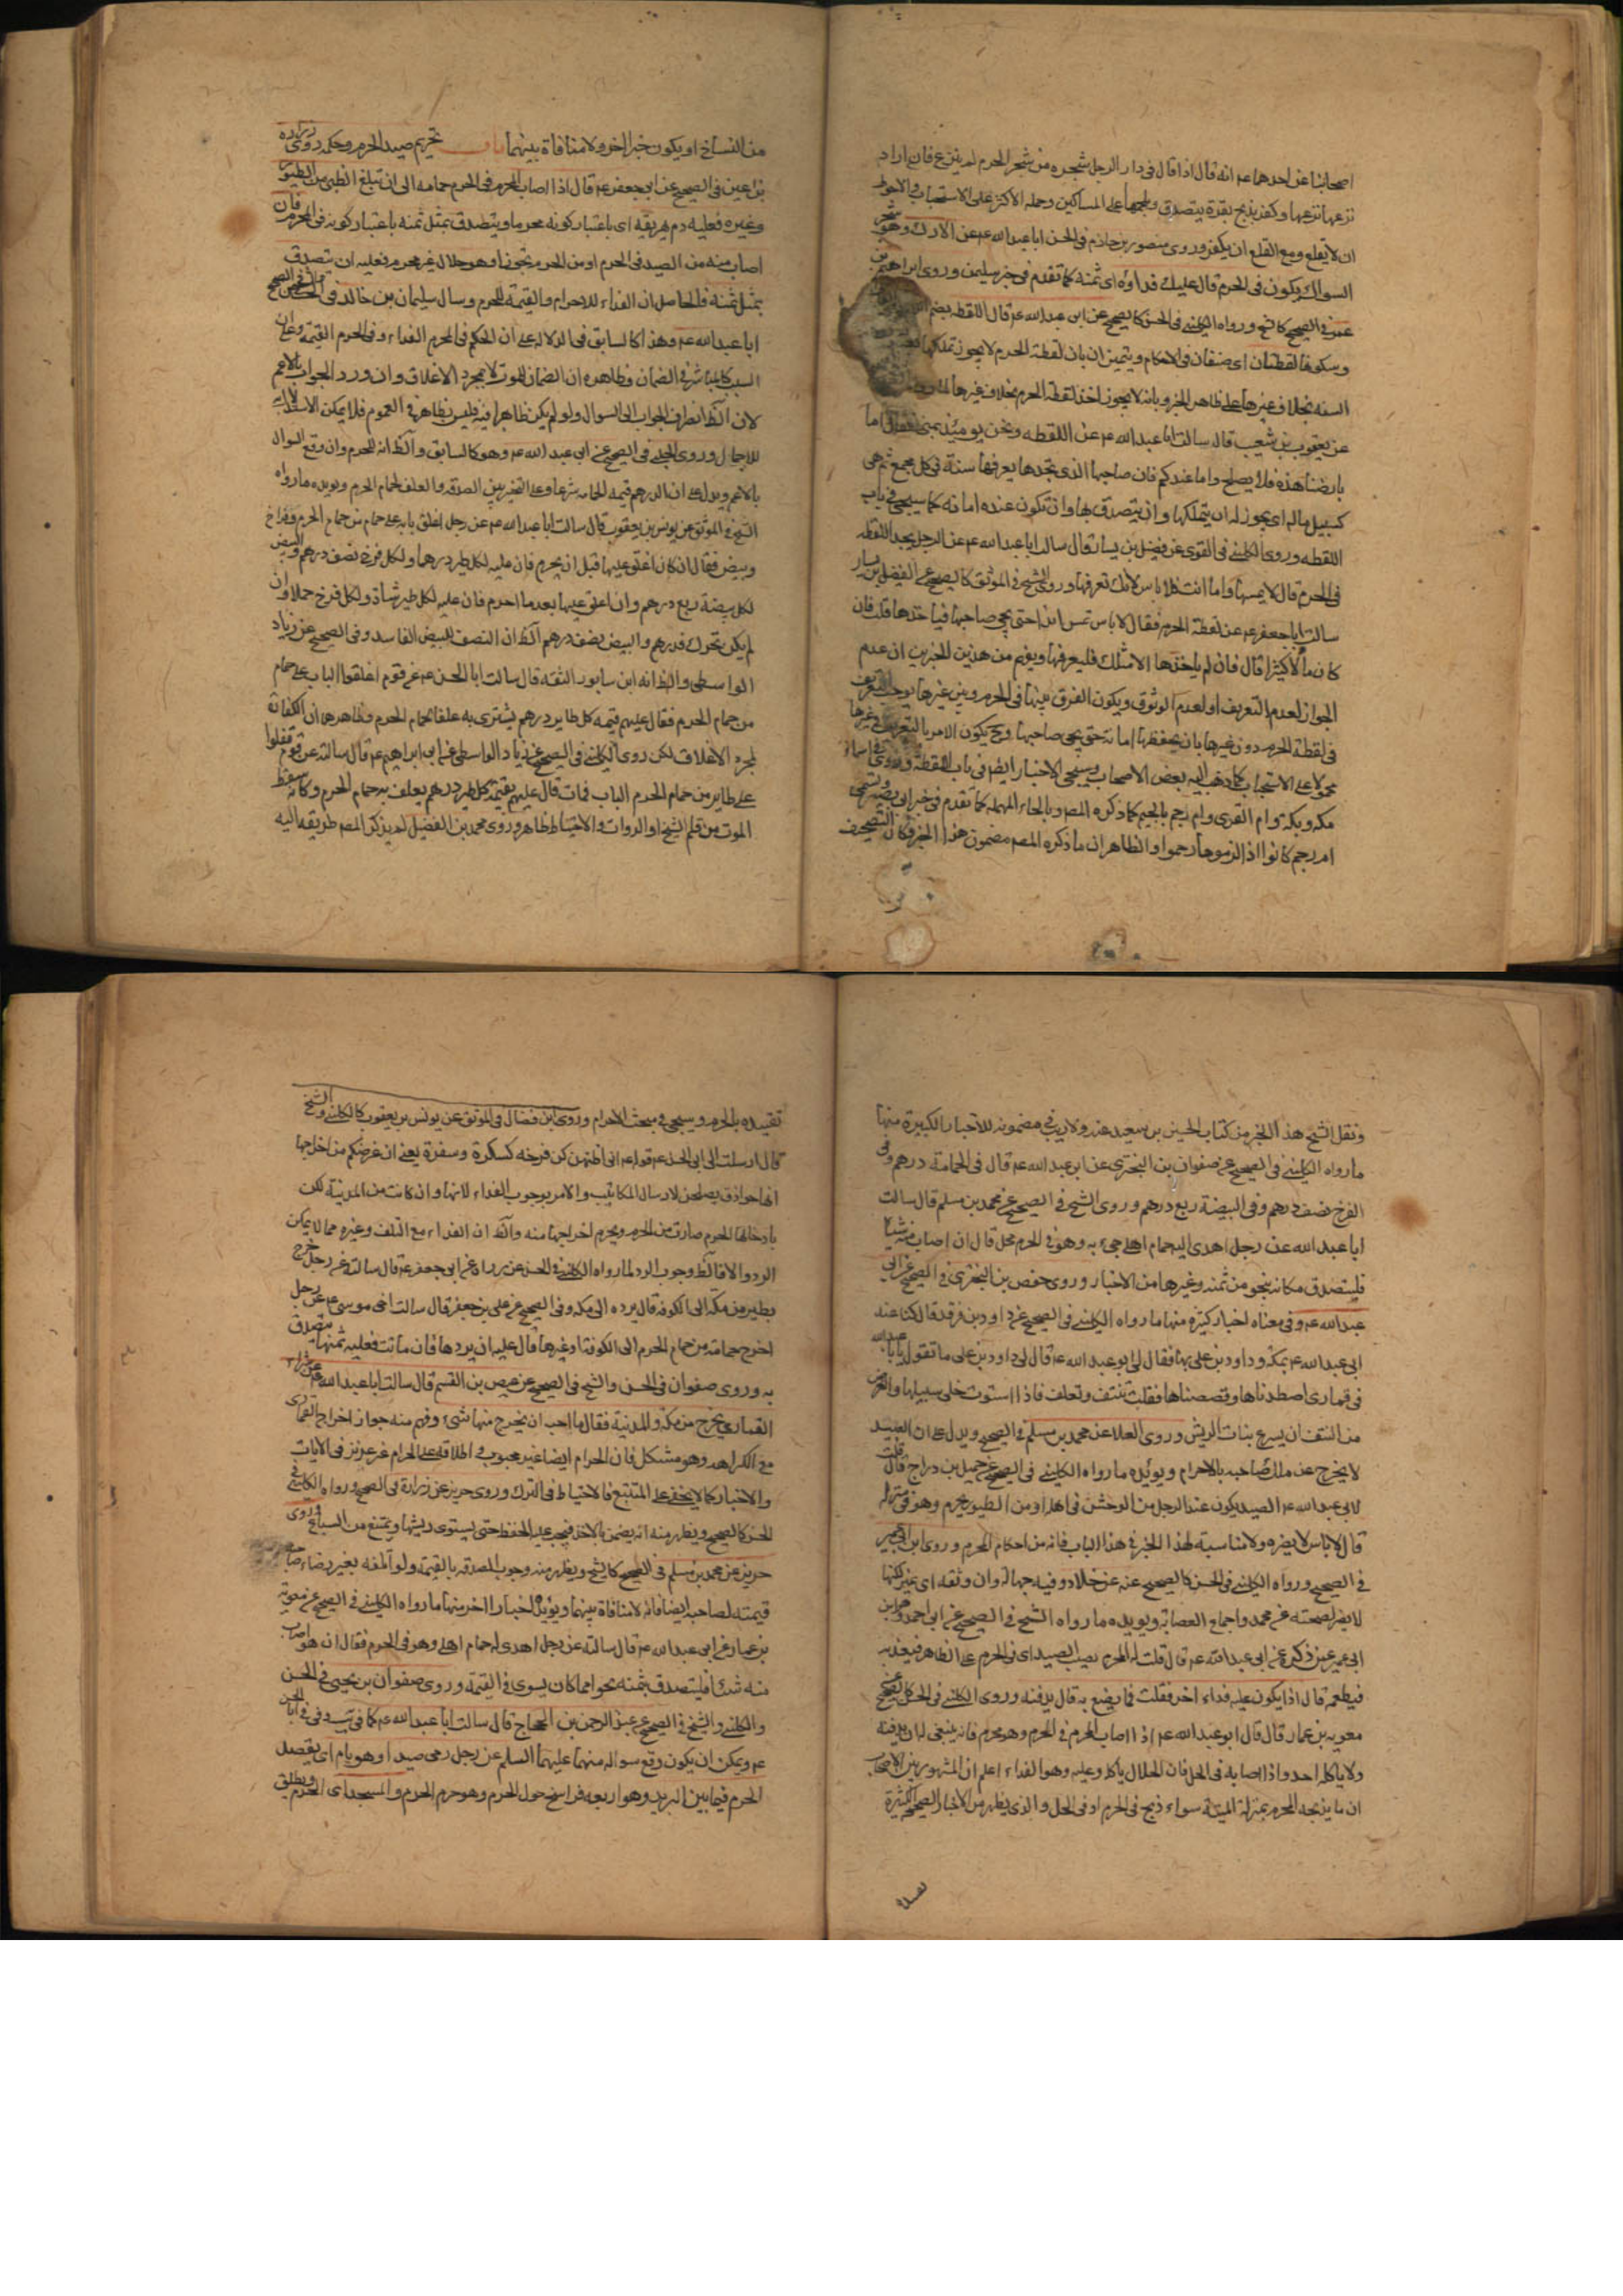 اصحابنا عن احدهما ع انه قال اذا قال فى دار الرجل شجره من شجر الحرم لم ينزع فان اراد
نزعها نزعها وكفر بذبح بقرة يتصدق بلحمها على المساكين وحمله الاكثر على الاستحباب والاحوط
ان لا يقلع ومع القلع ان يكفر وروى منصور بن حازم فى الحسن ابا عبد الله ع عن الاراك
السواك يكون فى الحرم قال عليك فداؤه اى ثمنه كما تقدم فى خبر سليمن وروى ابراهيم بن
عمر فى الصحيح كالشيخ ورواه الكلينى فى الحسن كالصحيح عن ابى عبد الله ع قال اللقطه بضم
وسكونها لقطتان اى صنفان فى الاحكام ويتميزان بان لقطة الحرم لا يجوز تملكها
السنه بخلاف غيرها على ظاهر الخبر وبانه لا يجوز اخذ لقطة الحرم بخلاف غيرها
عن يعقوب بن شعيب قال سالت ابا عبد الله ع عن اللقطه ونحن يومئذ بمنى فقال اما
بارضنا هذه فلا يصلح واما عندكم فان صاحبها الذى يجدها يعرفها سنة فى كل مجمع ثم هى
كسبيل ماله اى يجوز له ان يتملكها وان يتصدق بها وان تكون عنده امانه كما سيجئ فى باب
اللقطه وروى الكلينى فى القوى عن فضيل بن يسار قال سالت ابا عبد الله ع عن الرجل يجد اللقطه
فى الحرم قال لا يمسها واما انت فلا باس لانك تعرفها وروى الشيخ فى الموثق كالصحيح عن الفضيل بن يسار
سالت ابا جعفر ع عن لقطة الحرم فقال لا تمس ابدا حتى يجئ صاحبها فياخذها قلت فان
كان مالا كثيرا قال فان لم ياخذها الا مثلك فليعرفها ويفهم من هذين الخبرين ان عدم
الجواز لعدم التعريف او لعدم الوثوق ويكون الفرق بينها فى الحرم وبين غيرها
فى لقطة الحرم دون غيرها بان يحفظها امانة حتى يجئ صاحبها وح يكون الامر بالتعريف
محمولا على الاستحباب كما ذهب اليه بعض الاصحاب وسيجئ الاخبار ايضا فى باب اللقطة وروى فى اسماء
مكه وبكة وام القرى وام رحم بالجيم كما ذكره المصر وبالحاء المهمله كما تقدم فى خبر ابى بصير وتسمى
ام رحم كانوا اذا لزموها رحموا والظاهر ان ما ذكره المصر مضمون هذا الخبر فكان التصحيف
من النساخ او يكون خبرا اخر ولا منافاة بينهما باب تحريم صيد الحرم وحكمه روى زراره
بن اعين فى الصحيح عن ابى جعفر ع قال اذا اصاب المحرم فى الحرم حمامه الى ان تبلغ الظبى من الطيور
وغيره فعليه دم يهريقه اى باعتبار كونه محرما ويتصدق بمثل ثمنه باعتبار كونه فى الحرم فان
اصاب منه من الصيد فى الحرم او من الحرم تجوزا وهو حلال غير محرم فعليه ان يتصدق
بمثل ثمنه فالحاصل ان الفداء للاحرام والقيمة للحرم وسال سليمان بن خالد فى
ابا عبد الله ع وهذا كالسابق فى الدلالة على ان الحكم فى المحرم الفداء وفى الحرم القيمة وعلى ان
السبب كالمباشر فى الضمان وظاهره ان الضمان للموت لا بمجرد الاغلاق وان ورد الجواب بالاعم
لان الظ انصراف الجواب الى السوال ولو لم يكن ظاهرا فيه فليس بظاهر فى العموم فلا يمكن الاستدلال به
للاجمال وروى الحلبى فى الصحيح عن ابى عبد الله ع وهو كالسابق والظ انه للمحرم وان وقع السوال
بالاعم ويدل على ان الدرهم قيمة الحمامه شرعا وعلى التخيير بين الصدقه والعلف لحمام الحرم ويؤيده ما رواه
الشيخ فى الموثق عن يونس بن يعقوب قال سالت ابا عبد الله ع عن رجل اغلق بابه على حمام من حمام الحرم وفراخ
وبيض فقال ان كان اغلق عليها قبل ان يحرم فان عليه لكل طير درهما ولكل فرخ نصف درهم والبيض
لكل بيضة ربع درهم وان اغلق عليها بعد ما احرم فان عليه لكل طير شاة ولكل فرخ حملا وان
لم يكن تحرك فدرهم والبيض نصف درهم الظ ان النصف للبيض الفاسد وفى الصحيح عن زياد
الواسطى والظ انه ابن سابور الثقه قال سالت ابا الحسن ع عن قوم اغلقوا الباب على حمام
من حمام الحرم فقال عليهم قيمة كل طاير درهم يشترى به علفا لحمام الحرم وظاهرها ان الكفارة
لمجرد الاغلاق لكن روى الكلينى فى الصحيح عن زياد الواسطى عن ابى ابراهيم ع قال سالته عن قوم قفلوا
على طاير من حمام الحرم الباب فمات قال عليهم بقيمة كل طير درهم يعلف به حمام الحرم وكانه سقط
الموت من قلم الشيخ او الرواة والاحتياط ظاهر وروى محمد بن الفضيل لم يذكر المصر طريقه اليه
ونقل الشيخ هذا الخبر من كتاب الحسين بن سعيد عنه ولا ريب فى مضمونه للاخبار الكبيرة منها
ما رواه الكلينى فى الصحيح عن صفوان بن البخترى عن ابى عبد الله ع قال فى الحمامة درهم وفى
الفرخ نصف درهم وفى البيضة ربع درهم وروى الشيخ فى الصحيح عن محمد بن مسلم قال سالت
ابا عبد الله عن رجل اهدى اليه حمام اهلى جىء به وهو فى الحرم محل قال ان اصاب منه شيئا
فليتصدق مكانه بنحو من ثمنه وغيرها من الاخبار وروى حفص بن البخترى فى الصحيح عن ابى
عبد الله ع وفى معناه اخبار كثيره منها ما رواه الكلينى فى الصحيح عن داود بن فرقد قال كنا عند
ابى عبد الله ع بمكة وداود بن على بها فقال لى ابو عبد الله ع قال لى داود بن على ما تقول يا ابا عبد الله
فى قمارى اصطدناها وقصصناها فقلت تنتف وتعلف فاذا استوت خلى سبيلها والغرض
من النتف ان يسرع بنات الريش وروى العلا عن محمد بن مسلم فى الصحيح ويدل على ان الصيد
لا يخرج عن ملك صاحبه بالاحرام ويؤيده ما رواه الكلينى فى الصحيح عن جميل بن دراج قال قلت
لابى عبد الله ع الصيد يكون عند الرجل من الوحش فى اهله او من الطير يحرم وهو فى منزله
قال لا باس لا يضره ولا مناسبة لهذا الخبر فى هذا الباب فانه من احكام المحرم وروى ابن ابى عمير
فى الصحيح ورواه الكلينى فى الحسن كالصحيح عنه عن خلاد وفيه جهالة وان وثقه اى عمير لكنها
لا يضر لصحته عن محمد واجماع العصابة ويويده ما رواه الشيخ فى الصحيح عن ابى احمد وهو ابن
ابى عمير عمن ذكره عن ابى عبد الله ع قال قلت له المحرم يصيب الصيد اى فى الحرم على الظاهر فيفديه
فيطعمه قال اذا يكون عليه فداء اخر فقلت فما يصنع به قال يدفنه وروى الكلينى فى الحسن كالصحيح عن
معويه بن عمار قال قال ابو عبد الله ع اذا اصاب المحرم فى الحرم وهو محرم فانه ينبغى له ان يدفنه
ولا ياكله احد واذا اصابه فى الحل فان الحلال ياكله وعليه هو الفداء اعلم ان المشهور بين الاصحاب
ان ما يذبحه المحرم بمنزلة الميتة سواء ذبح فى الحرم او فى الحل والذى يظهر من الاخبار الصحيحة الكثيرة
تقييده بالحرم وسيجئ فى مبحث الاحرام وروى ابن فضال فى الموثق عن يونس بن يعقوب كالكلينى والشيخ
قال ارسلت الى ابى الحسن ع قوله ع انى اظنهن كن فرخه كسكرة وسفرة يعنى ان غرضكم من اخراجها
انها حواذق يصلحن لارسال المكاتيب والامر بوجوب الفداء لانها وان كانت من المدينة لكن
بادخالها الحرم صارت من الحرم ويحرم اخراجها منه والظ ان الفداء مع التلف وغيره مما لا يمكن
الرد والا فالظ وجوب الرد لما رواه الكلينى فى الحسن عن زراره عن ابى جعفر ع قال سالته عن رجل خرج
بطير من مكة الى الكوفة قال يرده الى مكة وفى الصحيح عن على بن جعفر قال سالت اخى موسى ع عن رجل
اخرج حمامة من حمام الحرم الى الكوفة او غيرها قال عليه ان يردها فان ماتت فعليه ثمنها يتصدق
به وروى صفوان فى الحسن والشيخ فى الصحيح عن عيص بن القسم قال سالت ابا عبد الله ع عن شراء
القمارى يخرج من مكة والمدينة فقال ما احب ان يخرج منها شىء وفهم منه جواز اخراج القمارى
مع الكراهه وهو مشكل فان الحرام ايضا غير محبوب واطلاقه على الحرام غير عزيز فى الايات
والاخبار كما لا يخفى على المتتبع فالاحتياط فى الترك وروى حريز عن زرارة فى الصحيح ورواه الكلينى فى
الحسن كالصحيح ويظهر منه انه يضمن بالاخذ فيجب عليه الحفظ حتى يستوى ريشها ويمتنع من السباع وروى
حريز عن محمد بن مسلم فى الصحيح كالشيخ ويظهر منه وجوب الصدقه بالقيمة ولو اتلفه بغير رضاء صاحبه
قيمته لصاحبه ايضا فانه لا منافاة بينهما ويؤيده اخبار اخر منها ما رواه الكلينى فى الصحيح عن معوية
بن عمار عن ابى عبد الله ع قال سالته عن رجل اهدى له حمام اهلى وهو فى الحرم فقال ان هو اصاب
منه شيئا فليتصدق بثمنه نحوا مما كان يسوى فى القيمة وروى صفوان بن يحيى فى الحسن
والكلينى والشيخ فى الصحيح عن عبد الرحمن بن الحجاج قال سالت ابا عبد الله ع كما فى يب وفى فى ابا الحسن
ع ويمكن ان يكون وقع سواله منهما عليهما السلم عن رجل رمى صيدا وهو يام اى يقصد
الحرم فيما بين البريد وهو اربعه فراسخ حول الحرم وهو حرم الحرم والمسجد اى الحرم ويطلق